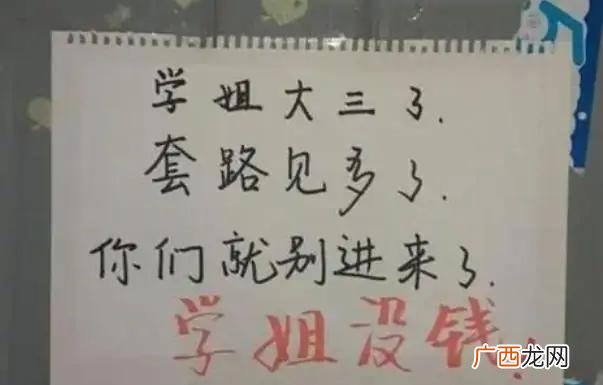 学姐大三了.
套路见多了.
你们就别进来了.
学姐没钱.
广西龙网